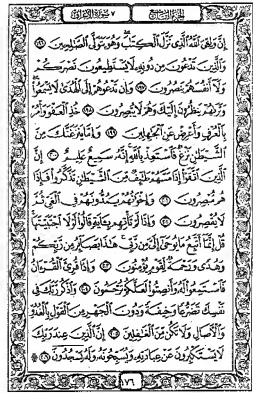 الجزء التاسع ٧ سورة الأعراف
إِنَّ وَلِـِّۧىَ ٱللَّهُ ٱلَّذِى نَزَّلَ ٱلْكِتَٰبَ وَهُوَ يَتَوَلَّى ٱلصَّٰلِحِينَ ١٩٦
وَٱلَّذِينَ تَدْعُونَ مِن دُونِهِۦ لَا يَسْتَطِيعُونَ نَصْرَكُمْ
وَلَآ أَنفُسَهُمْ يَنصُرُونَ ١٩٧ وَإِن تَدْعُوهُمْ إِلَى ٱلْهُدَىٰ لَا يَسْمَعُوا۟
وَتَرَىٰهُمْ يَنظُرُونَ إِلَيْكَ وَهُمْ لَا يُبْصِرُونَ ١٩٨ خُذِ ٱلْعَفْوَ وَأْمُرْ
بِٱلْعُرْفِ وَأَعْرِضْ عَنِ ٱلْجَٰهِلِينَ ١٩٩ وَإِمَّا يَنزَغَنَّكَ مِنَ
ٱلشَّيْطَٰنِ نَزْغٌ فَٱسْتَعِذْ بِٱللَّهِ إِنَّهُۥ سَمِيعٌ عَلِيمٌ ٢٠٠ إِنَّ
ٱلَّذِينَ ٱتَّقَوْا۟ إِذَا مَسَّهُمْ طَٰٓئِفٌ مِّنَ ٱلشَّيْطَٰنِ تَذَكَّرُوا۟ فَإِذَا
هُم مُّبْصِرُونَ ٢٠١ وَإِخْوَٰنُهُمْ يَمُدُّونَهُمْ فِى ٱلْغَىِّ ثُمَّ
لَا يُقْصِرُونَ ٢٠٢ وَإِذَا لَمْ تَأْتِهِم بِـَٔايَةٍ قَالُوا۟ لَوْلَا ٱجْتَبَيْتَهَا
قُلْ إِنَّمَآ أَتَّبِعُ مَا يُوحَىٰٓ إِلَىَّ مِن رَّبِّى هَٰذَا بَصَآئِرُ مِن رَّبِّكُمْ
وَهُدًى وَرَحْمَةٌ لِّقَوْمٍ يُؤْمِنُونَ ٢٠٣ وَإِذَا قُرِئَ ٱلْقُرْءَانُ
فَٱسْتَمِعُوا۟ لَهُۥ وَأَنصِتُوا۟ لَعَلَّكُمْ تُرْحَمُونَ ٢٠٤ وَٱذْكُر رَّبَّكَ فِى
نَفْسِكَ تَضَرُّعًا وَخِيفَةً وَدُونَ ٱلْجَهْرِ مِنَ ٱلْقَوْلِ بِٱلْغُدُوِّ
وَٱلْـَٔاصَالِ وَلَا تَكُن مِّنَ ٱلْغَٰفِلِينَ ٢٠٥ إِنَّ ٱلَّذِينَ عِندَ رَبِّكَ
لَا يَسْتَكْبِرُونَ عَنْ عِبَادَتِهِۦ وَيُسَبِّحُونَهُۥ وَلَهُۥ يَسْجُدُونَ ٢٠٦
١٧٦